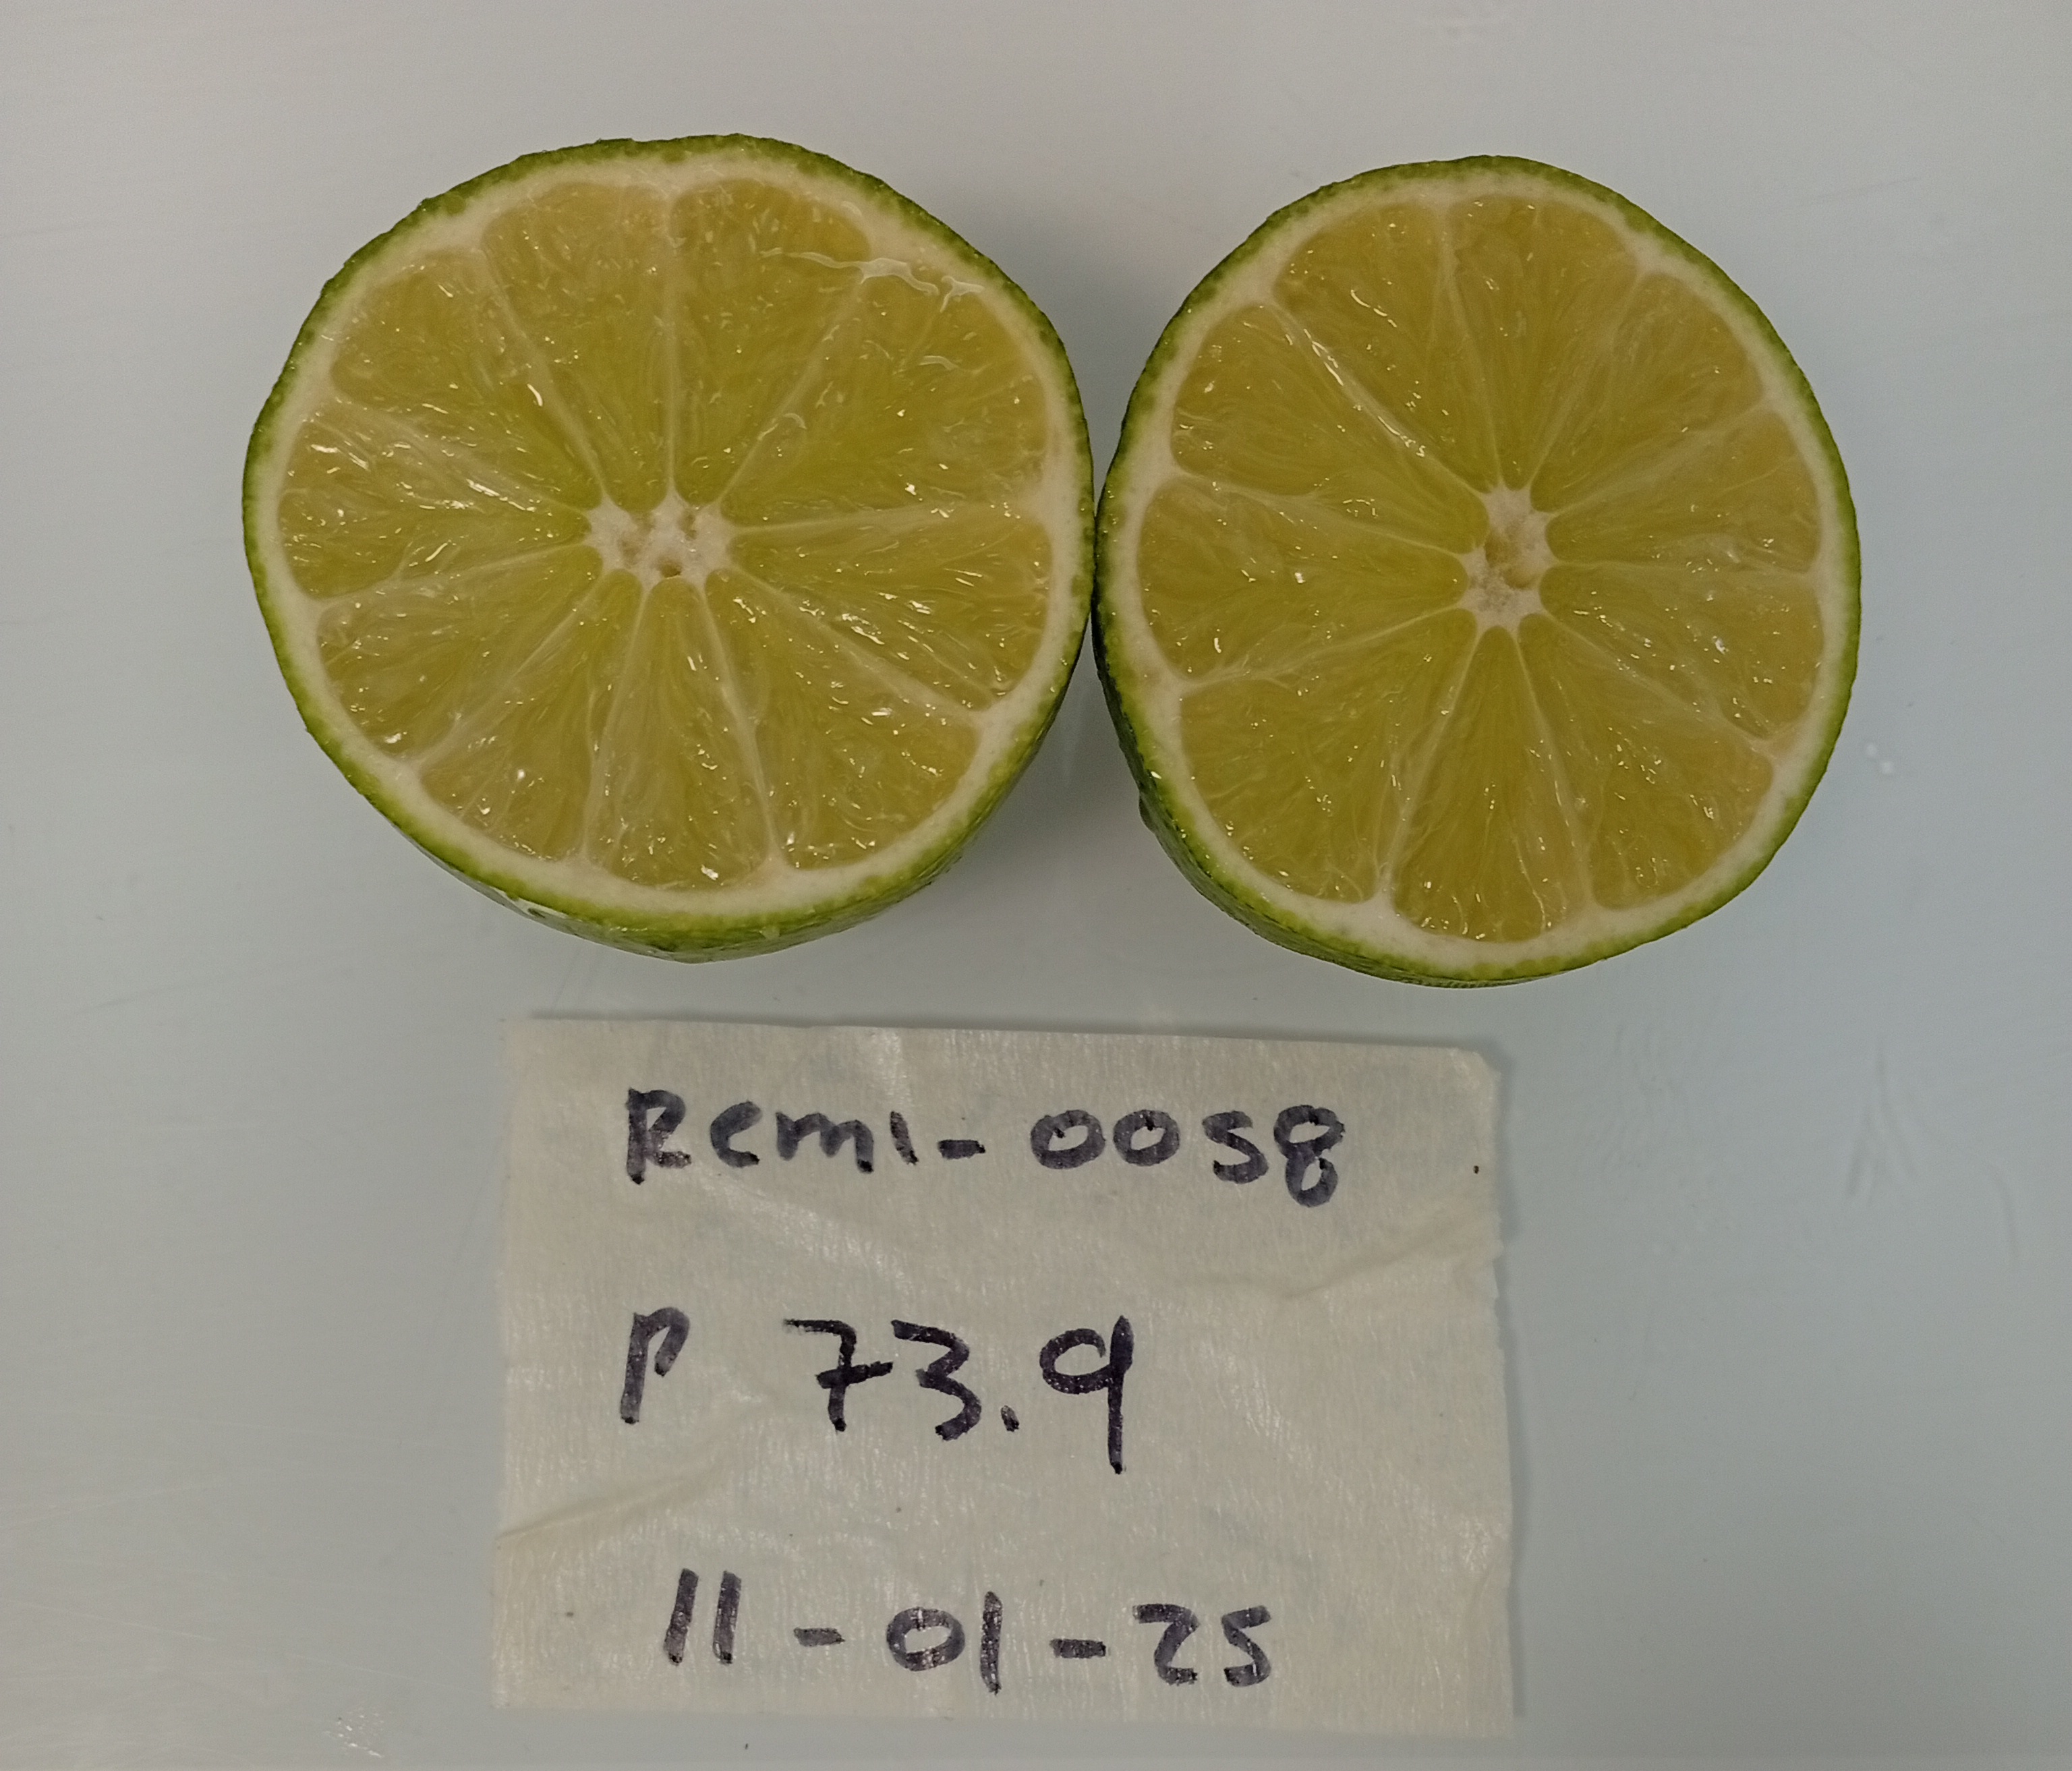 Reml-0058
P 73.9
11-01-25